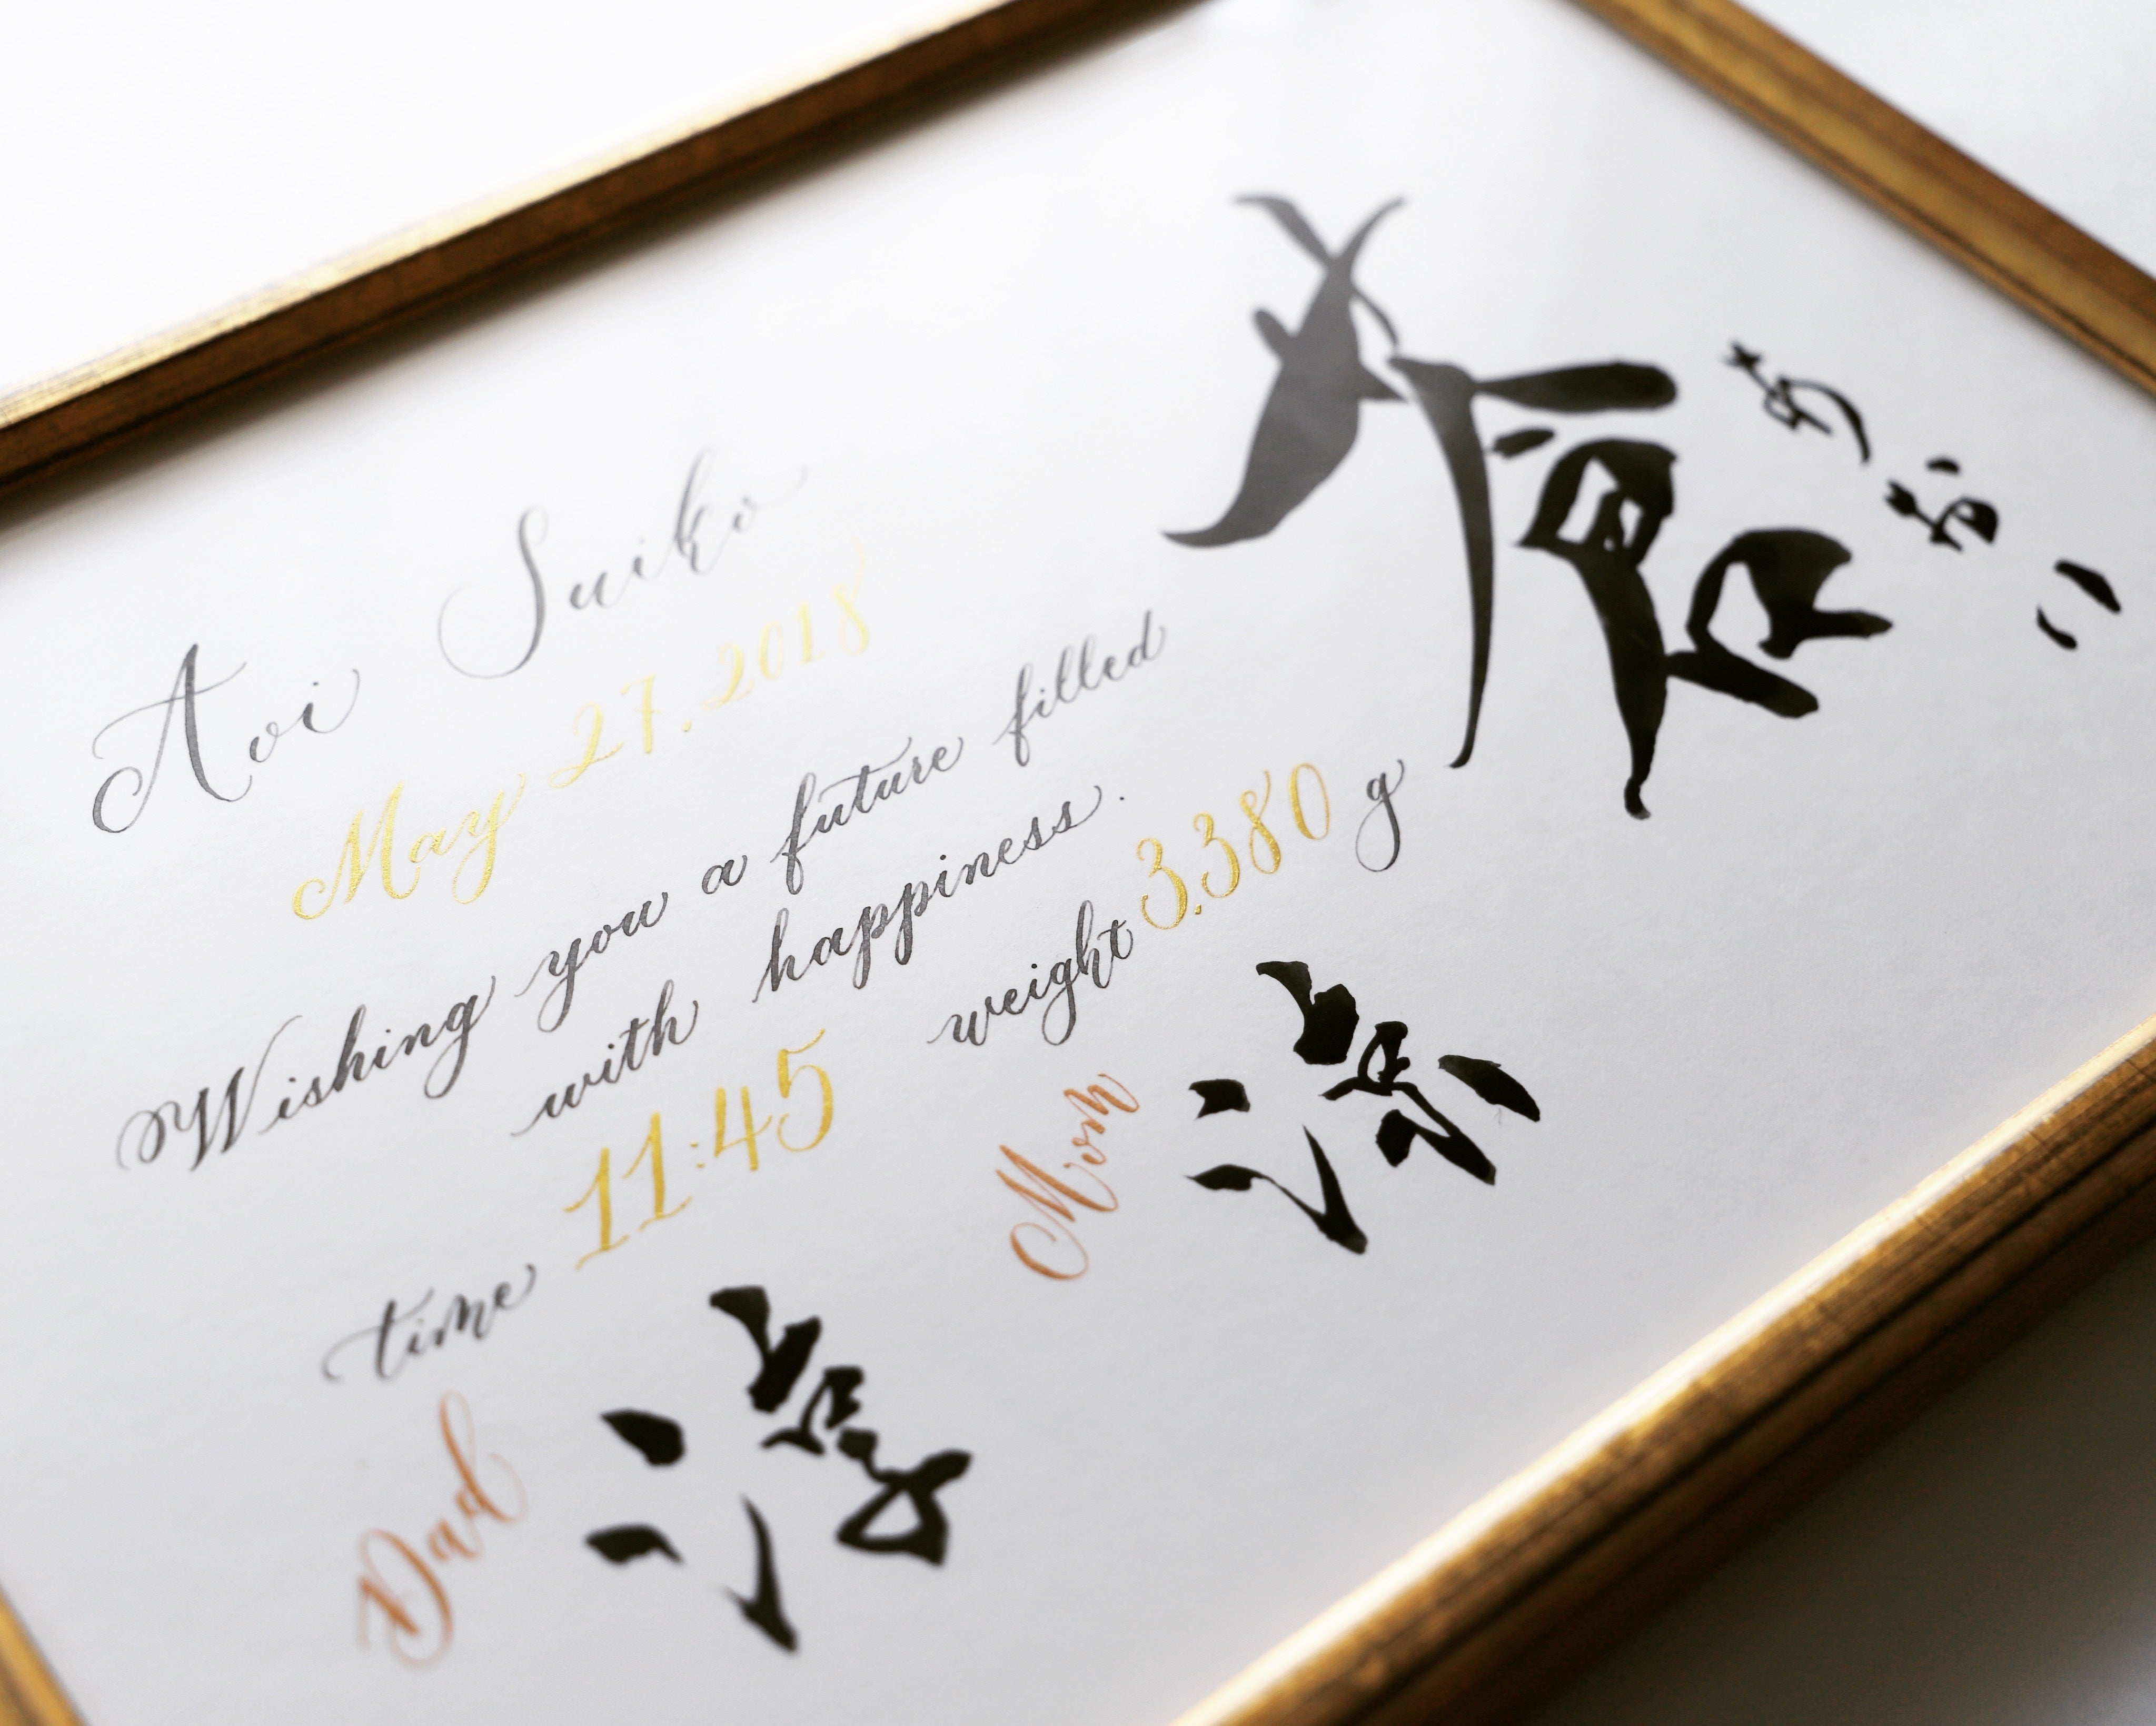 Aoi Suiko
May 27.2018
Wishing you a future filled
with happiness.
time 11:45 weight 3.380 g
蒼
あおい
Dad
Mom 涼